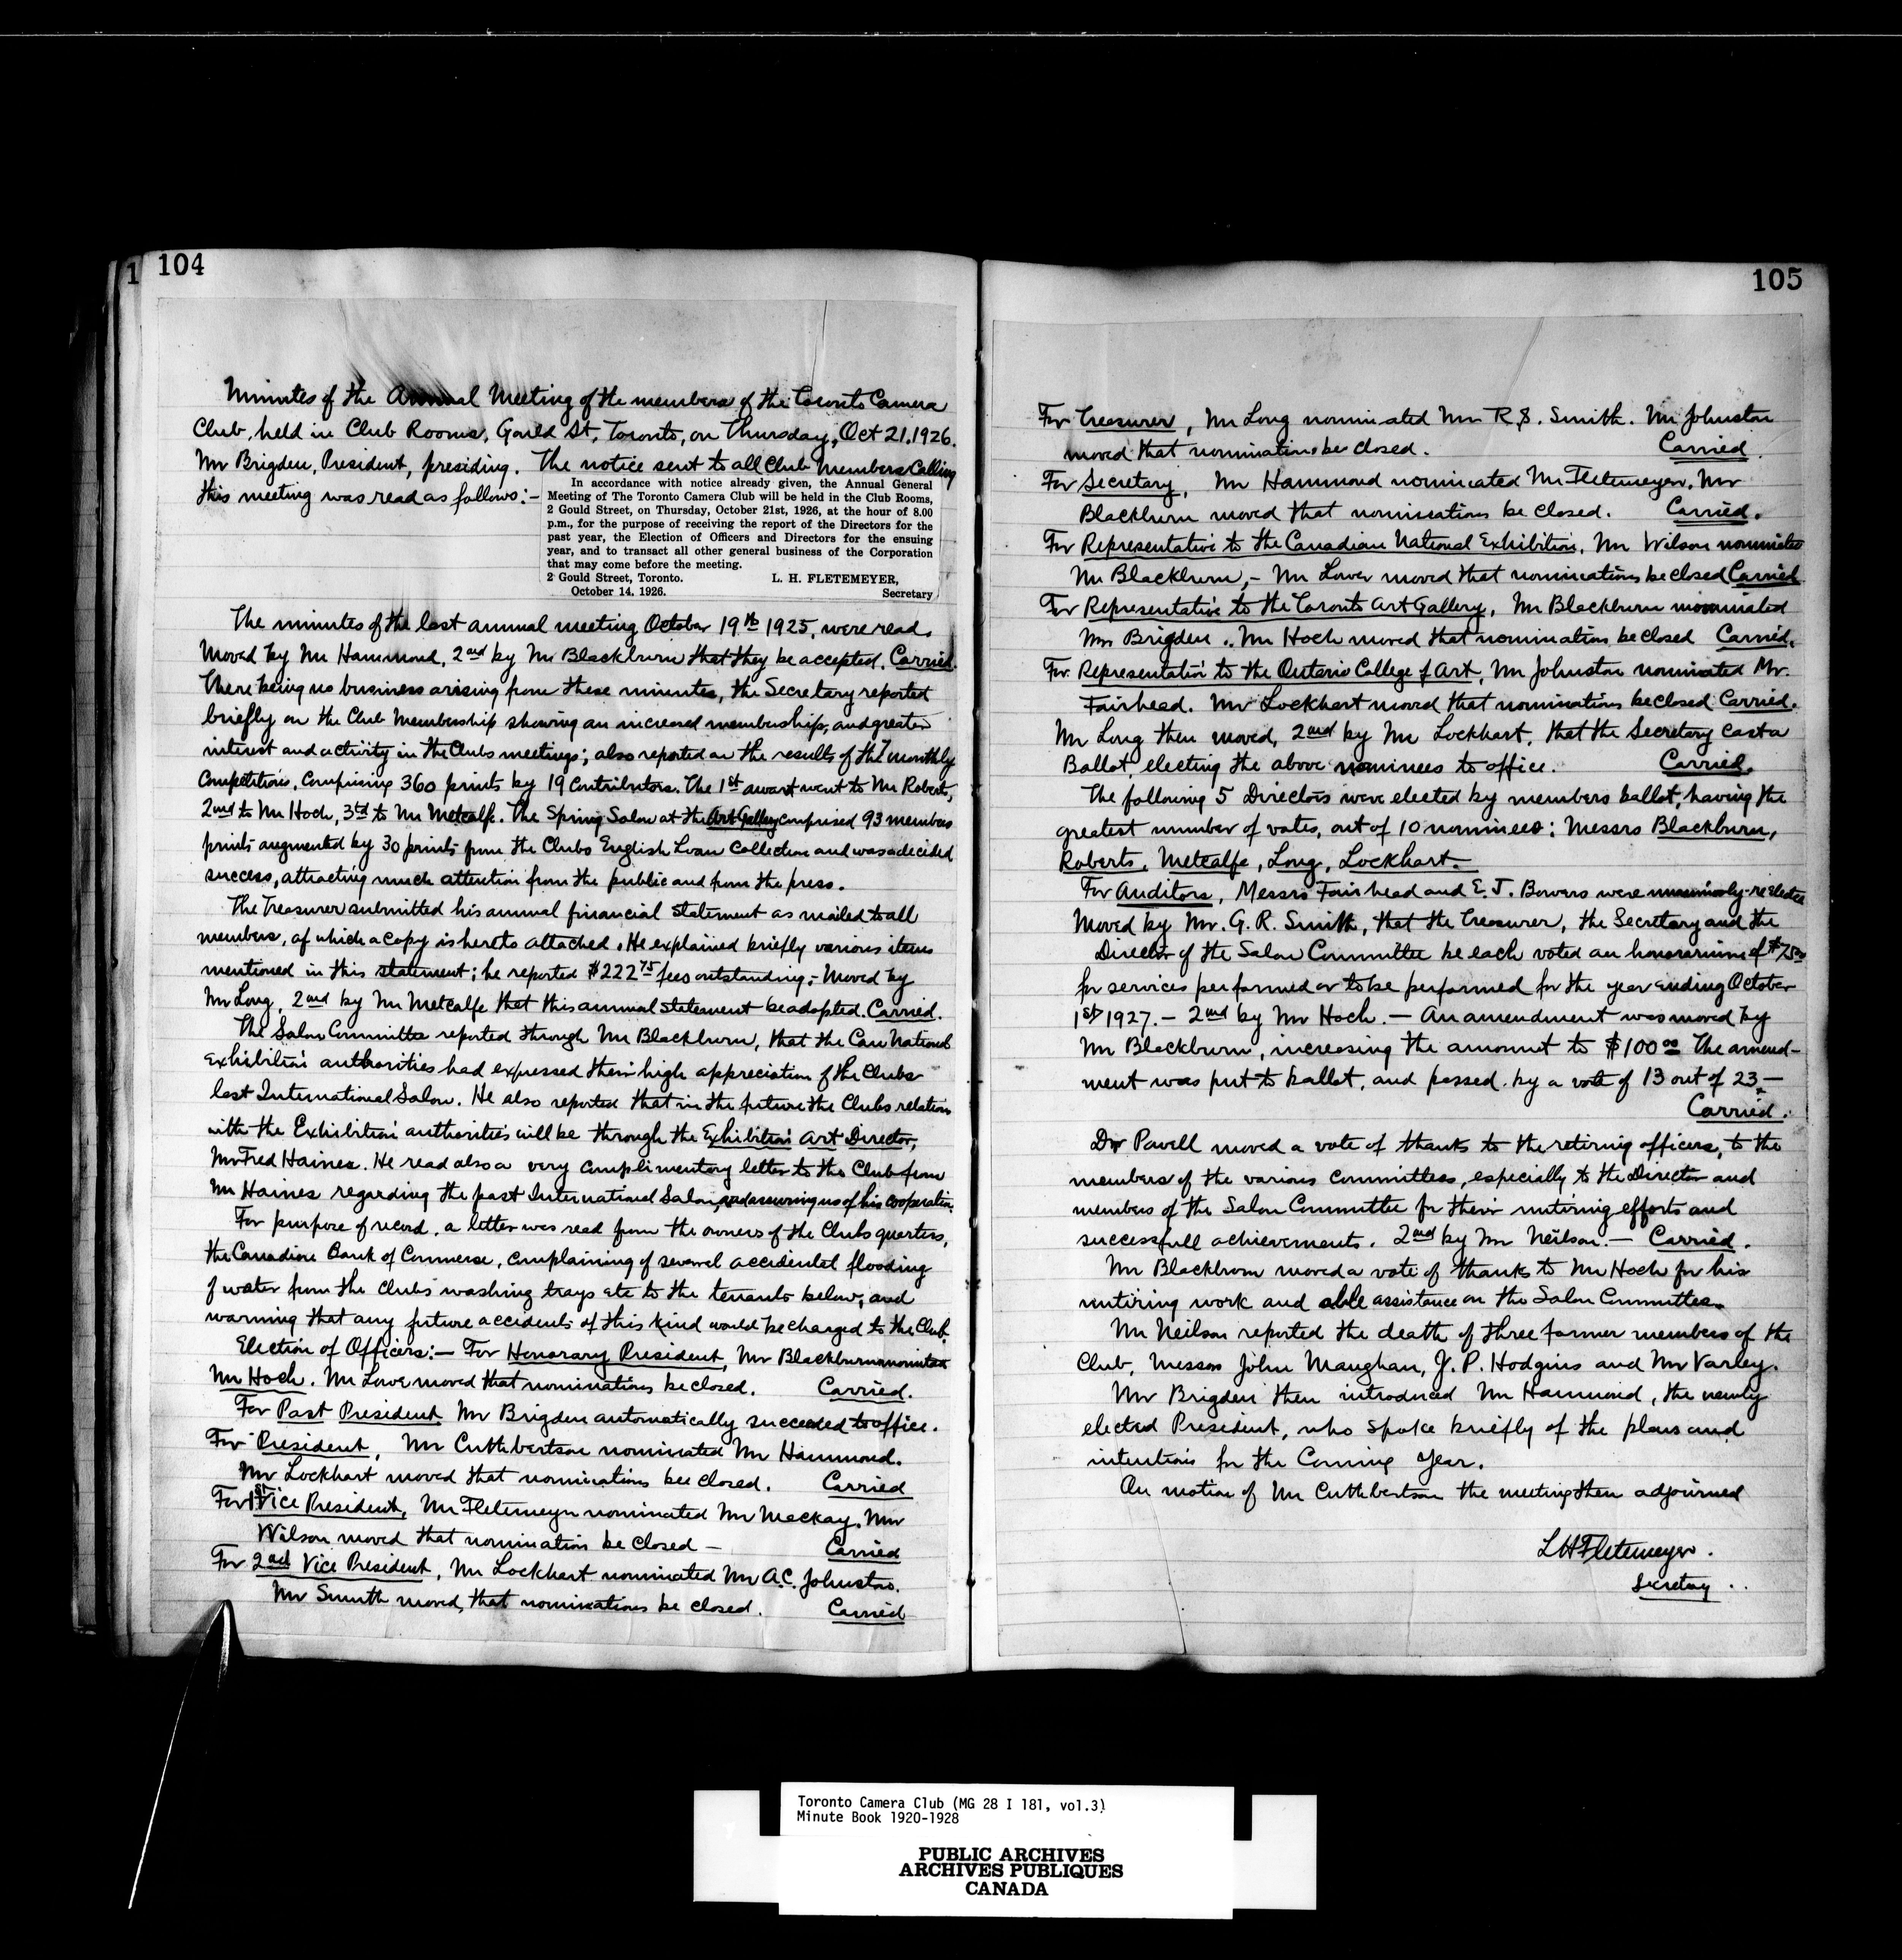 1 104
Minutes of the Annual Meeting of the members of the Toronto Camera
Club, held in Club Rooms, Gould St, Toronto, on Thursday, Oct 21. 1926.
Mr Brigden, President, presiding. The notice sent to all Club Members Calling
this meeting was read as follows:-
In accordance with notice already given, the Annual General
Meeting of The Toronto Camera Club will be held in the Club Rooms,
2 Gould Street, on Thursday, October 21st, 1926, at the hour of 8.00
p.m., for the purpose of receiving the report of the Directors for the
past year, the Election of Officers and Directors for the ensuing
year, and to transact all other general business of the Corporation
that may come before the meeting.
2 Gould Street, Toronto. L. H. FLETEMEYER,
October 14, 1926. Secretary
The minutes of the last annual meeting October 19th 1925, were read.
Moved by Mr Hammond, 2nd by Mr Blackburn that they be accepted. Carried.
There being no business arising from these minutes, the Secretary reported
briefly on the Club Membership showing an increased membership, and greater
interest and activity in the Clubs meetings; also reported on the results of the 7 monthly
Competitions, comprising 360 prints by 19 Contributors. The 1st awart went to Mr Roberts,
2nd to Mr Hoch, 3rd to Mr Metcalfe. The Spring Salon at the Art Gallery comprised 93 members
prints augmented by 30 prints from the Clubs English Loan Collection and was a decided
success, attracting much attention from the public and from the press.
The Treasurer submitted his annual financial statement as mailed to all
members, of which a copy is hereto attached. He explained briefly various items
mentioned in this statement; he reported $222 75 fees outstanding;- Moved by
Mr Long, 2nd by Mr Metcalfe that this annual statement be adopted. Carried.
The Salon Committee reported through Mr Blackburn, that the Can National
Exhibition authorities had expressed their high appreciation of the Clubs
last International Salon. He also reported that in the future the Clubs relation
with the Exhibition authorities will be through the Exhibition Art Director,
Mr Fred Haines. He read also a very complimentory letter to the Club from
Mr Haines regarding the past International Salon, and assuring us of his cooperation.
For purpose of record, a letter was read from the owners of the Clubs quarters,
the Canadian Bank of Commerse, complaining of several accidental flooding
of water from the Clubs washing trays etc to the tenants below, and
warning that any future accidents of this kind would be charged to the Club.
Election of Officers:- For Honorary President, Mr Blackburn nominated
Mr Hoch. Mr Lowe moved that nominations be closed. Carried.
For Past President Mr Brigden automatically succeeded to office.
For President, Mr Cuthbertson nominated Mr Hammond.
Mr Lockhart moved that nominations bee closed. Carried
For 1st Vice President, Mr Fletemeyer nominated Mr Mackay. Mr
Wilson moved that nomination be closed - Carried
For 2nd Vice President, Mr Lockhart nominated Mr A.C. Johnston.
Mr Smith moved, that nominations be closed. Carried
105
For Treasurer, Mr Long nominated Mr R. S. Smith. Mr Johnston
moved that nominations be closed. Carried.
For Secretary, Mr Hammond nominated Mr Fletemeyer. Mr
Blackburn moved that nominations be closed. Carried.
For Representative to the Canadian National Exhibition, Mr Wilson nominated
Mr Blackburn,- Mr Lower moved that nominations be closed Carried
For Representative to the Toronto Art Gallery, Mr Blackburn nominated
Mr Brigden. Mr Hoch moved that nomination be closed Carried.
For Representative to the Ontario College of Art, Mr Johnston nominated Mr.
Fairhead. Mr Lockhart moved that nominations be closed Carried.
Mr Long then moved, 2nd by Mr Lockhart, that the Secretary cast a
Ballot, electing the above nominees to office. Carried.
The following 5 Directors were elected by members ballot, having the
greatest number of votes, out of 10 nominees: Messrs Blackburn,
Roberts, Metcalfe, Long, Lockhart.
For Auditors, Messrs Fairhead and E. J. Bowers were unanimously re-elected
Moved by Mr. G. R. Smith, that the Treasurer, the Secretary and the
Director of the Salon Committee be each voted an honorarium of $75 00
for services performed or to be performed for the year ending October
1st 1927. - 2nd by Mr Hoch. - An amendment was moved by
Mr Blackburn, increasing the amount to $100 00 The amend-
ment was put to ballot, and passed by a vote of 13 out of 23.-
Carried.
Dr Powell moved a vote of thanks to the retiring officers, to the
members of the various committees, especially to the Director and
members of the Salon Committee for their untiring efforts and
successfull achievements. 2nd by Mr Neilson. - Carried.
Mr Blackburn moved a vote of thanks to Mr Hoch for his
untiring work and able assistance on the Salon Committee.
Mr Neilson reported the death of three former members of the
Club, Messrs John Maughan, J. P. Hodgins and Mr Varley.
Mr Brigden then introduced Mr Hammond, the newly
elected President, who spoke briefly of the plans and
intentions for the Coming Year.
On motion of Mr Cuthbertson the meeting then adjourned
L H Fletemeyer.
Secretary
Toronto Camera Club (MG 28 I 181, vol.3)
Minute Book 1920-1928
PUBLIC ARCHIVES
ARCHIVES PUBLIQUES
CANADA